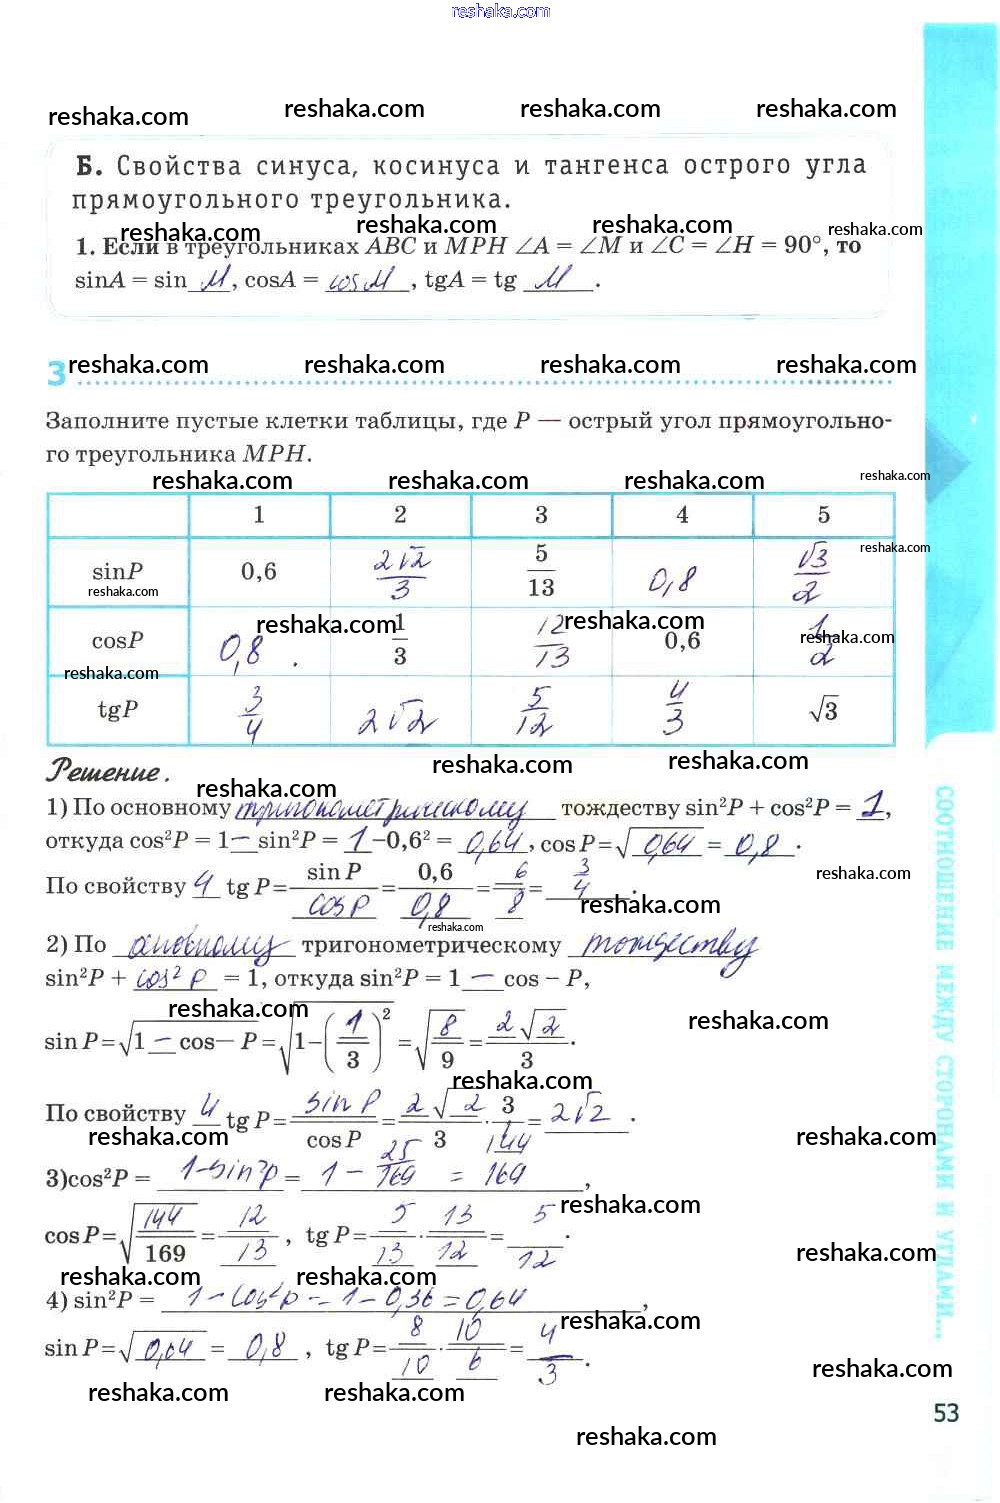 reshaka.com
reshaka.com reshaka.com reshaka.com reshaka.com
Б. Свойства синуса, косинуса и тангенса острого угла
прямоугольного треугольника.
reshaka.com reshaka.com reshaka.com reshaka.com
1. Если в треугольниках ABC и MPH ∠A = ∠M и ∠C = ∠H = 90°, то
sinA = sin M, cosA = cos M, tgA = tg M.
3 reshaka.com reshaka.com reshaka.com reshaka.com
Заполните пустые клетки таблицы, где P — острый угол прямоугольно-
го треугольника MPH.
reshaka.com reshaka.com reshaka.com reshaka.com
1 2 3 4 5
sinP 0,6 2√2/3 5/13 0,8 √3/2
reshaka.com reshaka.com
cosP 0,8 1/3 12/13 0,6 1/2
reshaka.com reshaka.com reshaka.com reshaka.com
tgP 3/4 2√2 5/12 4/3 √3
Решение.
reshaka.com reshaka.com reshaka.com
1) По основному тригонометрическому тождеству sin²P + cos²P = 1,
откуда cos²P = 1 – sin²P = 1 –0,6² = 0,64, cos P=√0,64 = 0,8.
По свойству 4 tg P= sin P/cos P = 0,6/0,8 = 6/8 = 3/4.
reshaka.com reshaka.com reshaka.com
2) По основному тригонометрическому тождеству
sin²P + cos² P = 1, откуда sin²P = 1 – cos – P,
reshaka.com reshaka.com
sin P=√1 – cos– P =√1–(1/3)² =√8/9 = 2√2/3.
reshaka.com
По свойству 4 tg P= sin P/cos P = 2√2/3 · 3/1 = 2√2.
reshaka.com reshaka.com
3)cos²P = 1-sin²P = 1 – 25/169 = 144/169,
reshaka.com
cos P=√144/169 = 12/13, tg P= 5/13 · 13/12 = 5/12.
reshaka.com reshaka.com reshaka.com
4) sin²P = 1 – cos²P = 1 – 0,36 = 0,64,
reshaka.com
sin P=√0,64 = 0,8, tg P= 8/10 · 10/6 = 4/3.
reshaka.com reshaka.com reshaka.com
reshaka.com
СООТНОШЕНИЕ МЕЖДУ СТОРОНАМИ И УГЛАМИ...
53